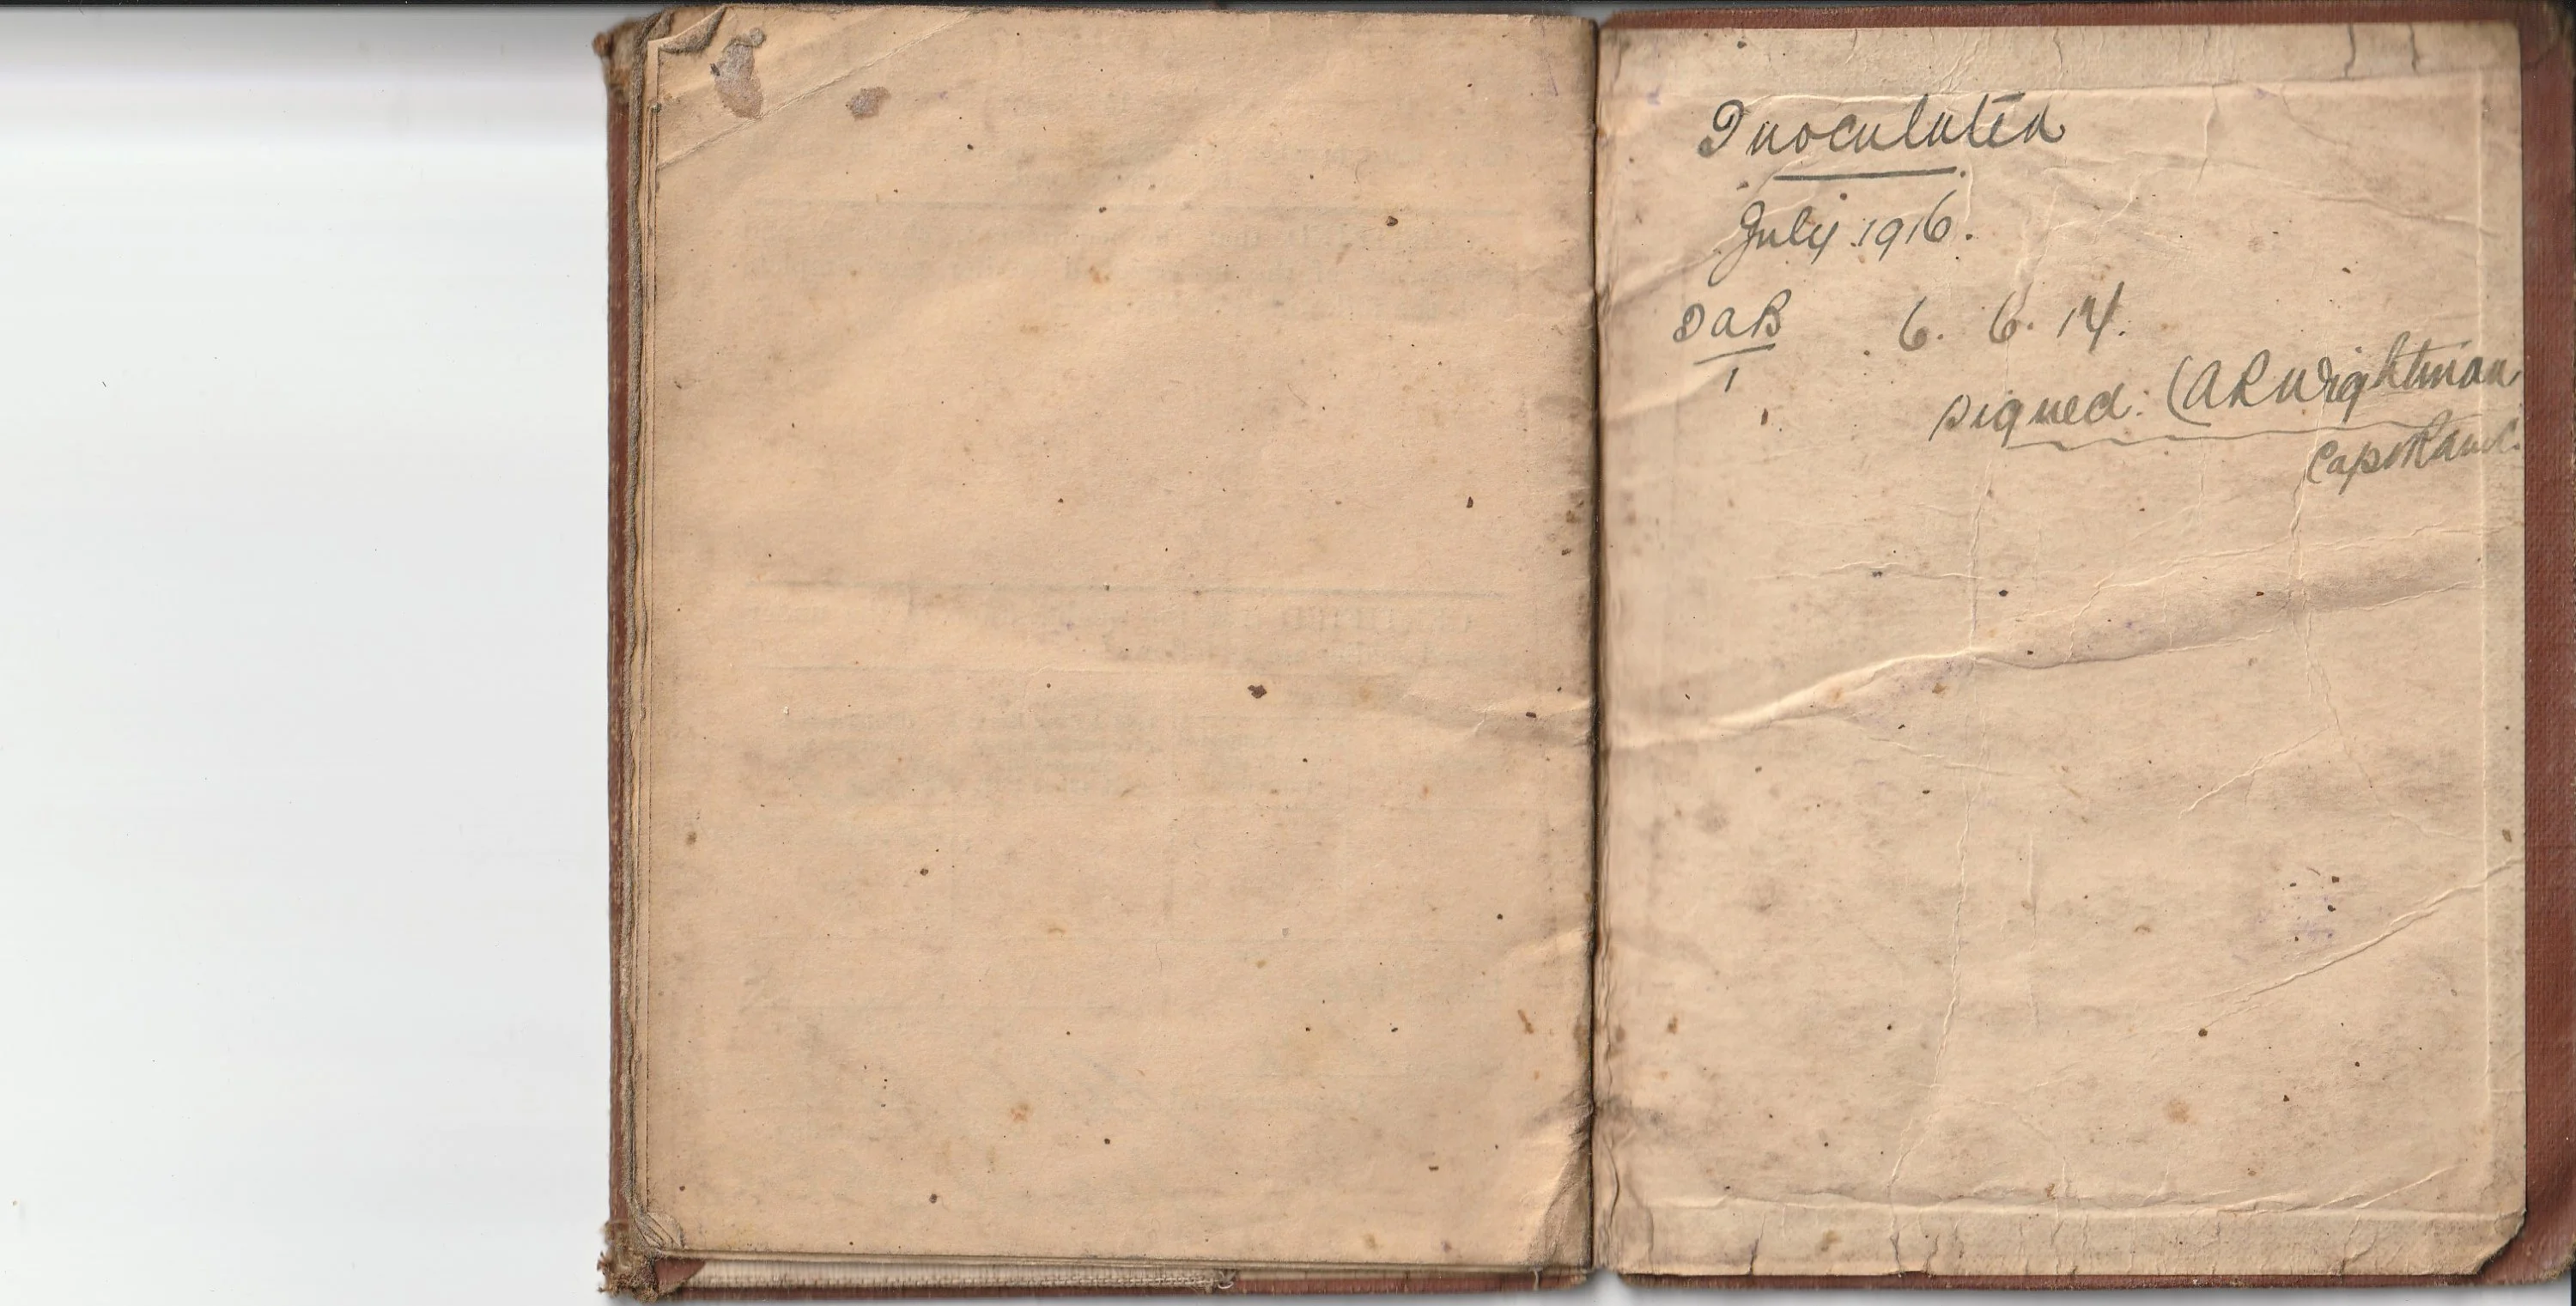 Inoculated
July 1916.
DAB 6. 6. 14.
1
signed: (ARWrightman
Capt Ramc.